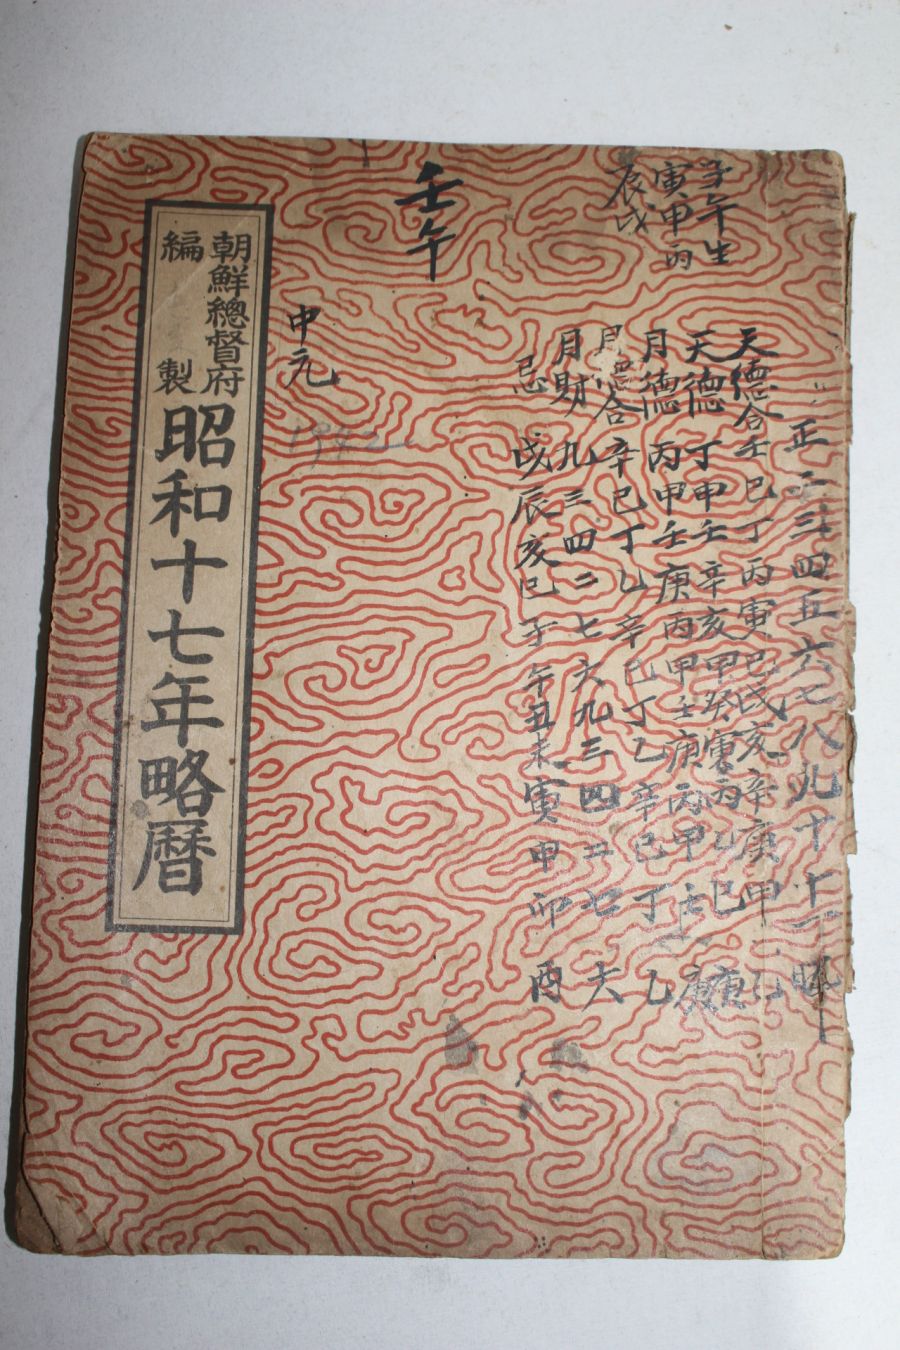 子午生
寅甲丙
辰戌
正二三四五六七八九十十一
天德合壬巳丁丙寅己戊亥辛庚甲乙
天德丁申壬辛亥甲癸寅丙乙巳庚
月德丙甲壬庚丙甲壬庚丙甲壬庚
月德合辛巳丁乙辛巳丁乙辛巳丁乙
月財九三四二七六九三四二七六
忌戌辰亥巳子午丑未寅申卯酉
壬午
中元
1942
朝鮮總督府
編製
昭和十七年略曆